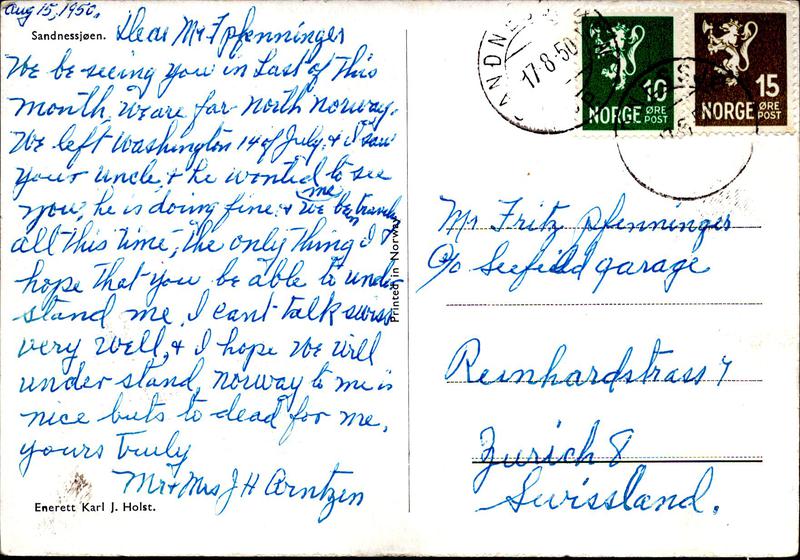 Aug 15, 1950.
Sandnessjøen.
Dear Mr F Pfenninger
We be seeing you in Last of This
month, We are far north Norway.
We left Washington 14 of July, & I saw
your uncle, & he wonted to see
you, he is doing fine, & We been
me
all this time, the only thing I
hope that you be able to under
stand me, I cant talk swiss
very well, & I hope we will
under stand, norway to me is
nice buts to dead for me,
yours Truly
Mr & Mrs J H Arntzen
Enerett Karl J. Holst.
Printed in Norway
SANDNE
17-8-50
10
NORGE ØRE POST
15
NORGE ØRE POST
Mr Fritz Pfenninger
C/o Seefield garage
Reinhardstrass 7
Zurich 8
Swissland.